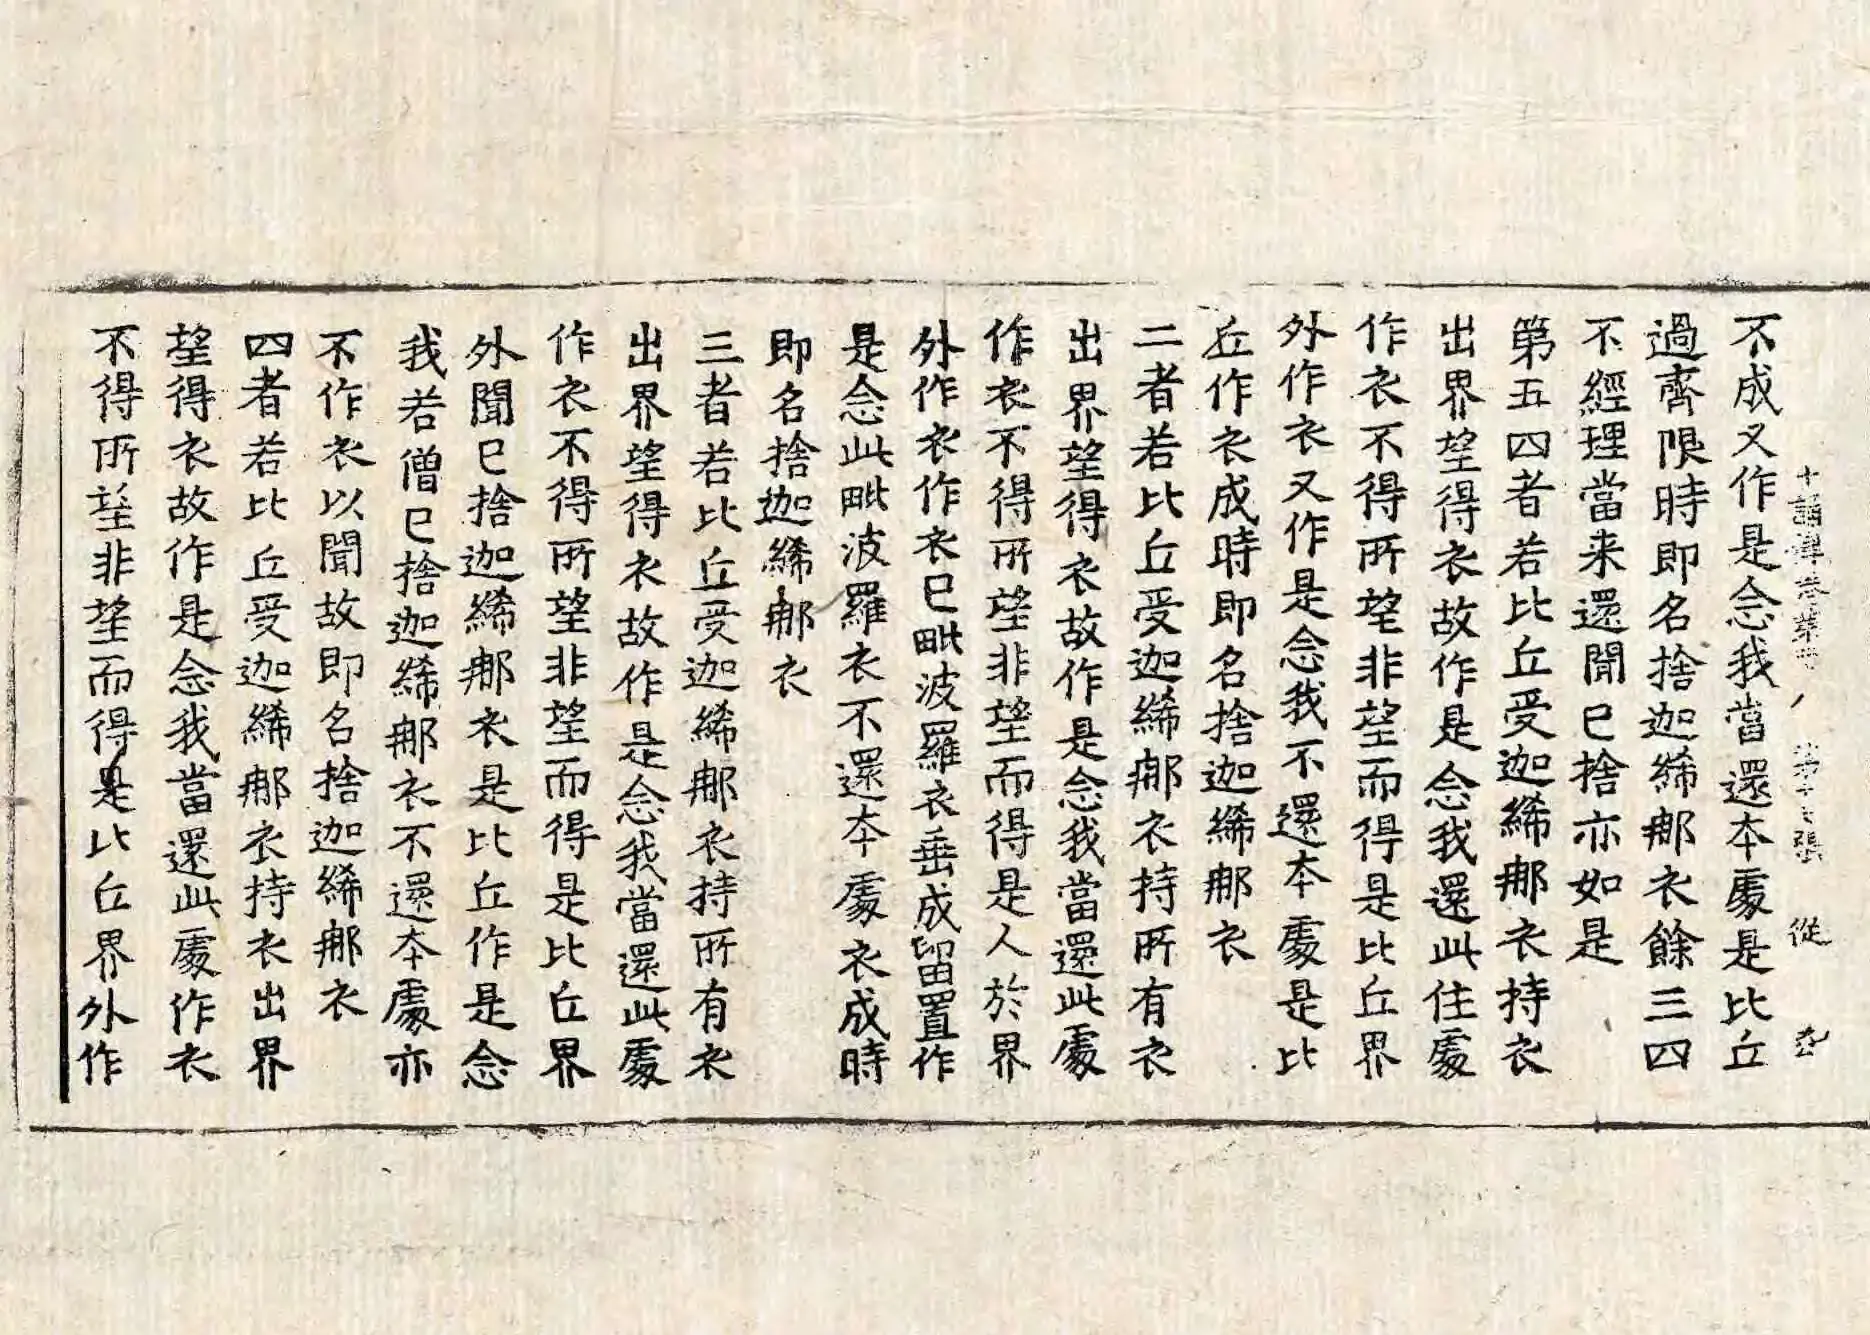 十誦律卷第 第十七張 從
不成又作是念我當還本處是比丘
過齊限時即名捨迦絺那衣餘三四
不經理當来還聞已捨亦如是
第五四者若比丘受迦絺那衣持衣
出界望得衣故作是念我還此住處
作衣不得所望非望而得是比丘界
外作衣又作是念我不還本處是比
丘作衣成時即名捨迦絺那衣
二者若比丘受迦絺那衣持所有衣
出界望得衣故作是念我當還此處
作衣不得所望非望而得是人於界
外作衣作衣已毗波羅衣垂成留置作
是念此毗波羅衣不還本處衣成時
即名捨迦絺那衣
三者若比丘受迦絺那衣持所有衣
出界望得衣故作是念我當還此處
作衣不得所望非望而得是比丘界
外聞已捨迦絺那衣是比丘作是念
我若僧已捨迦絺那衣不還本處亦
不作衣以聞故即名捨迦絺那衣
四者若比丘受迦絺那衣持衣出界
望得衣故作是念我當還此處作衣
不得所望非望而得是比丘界外作